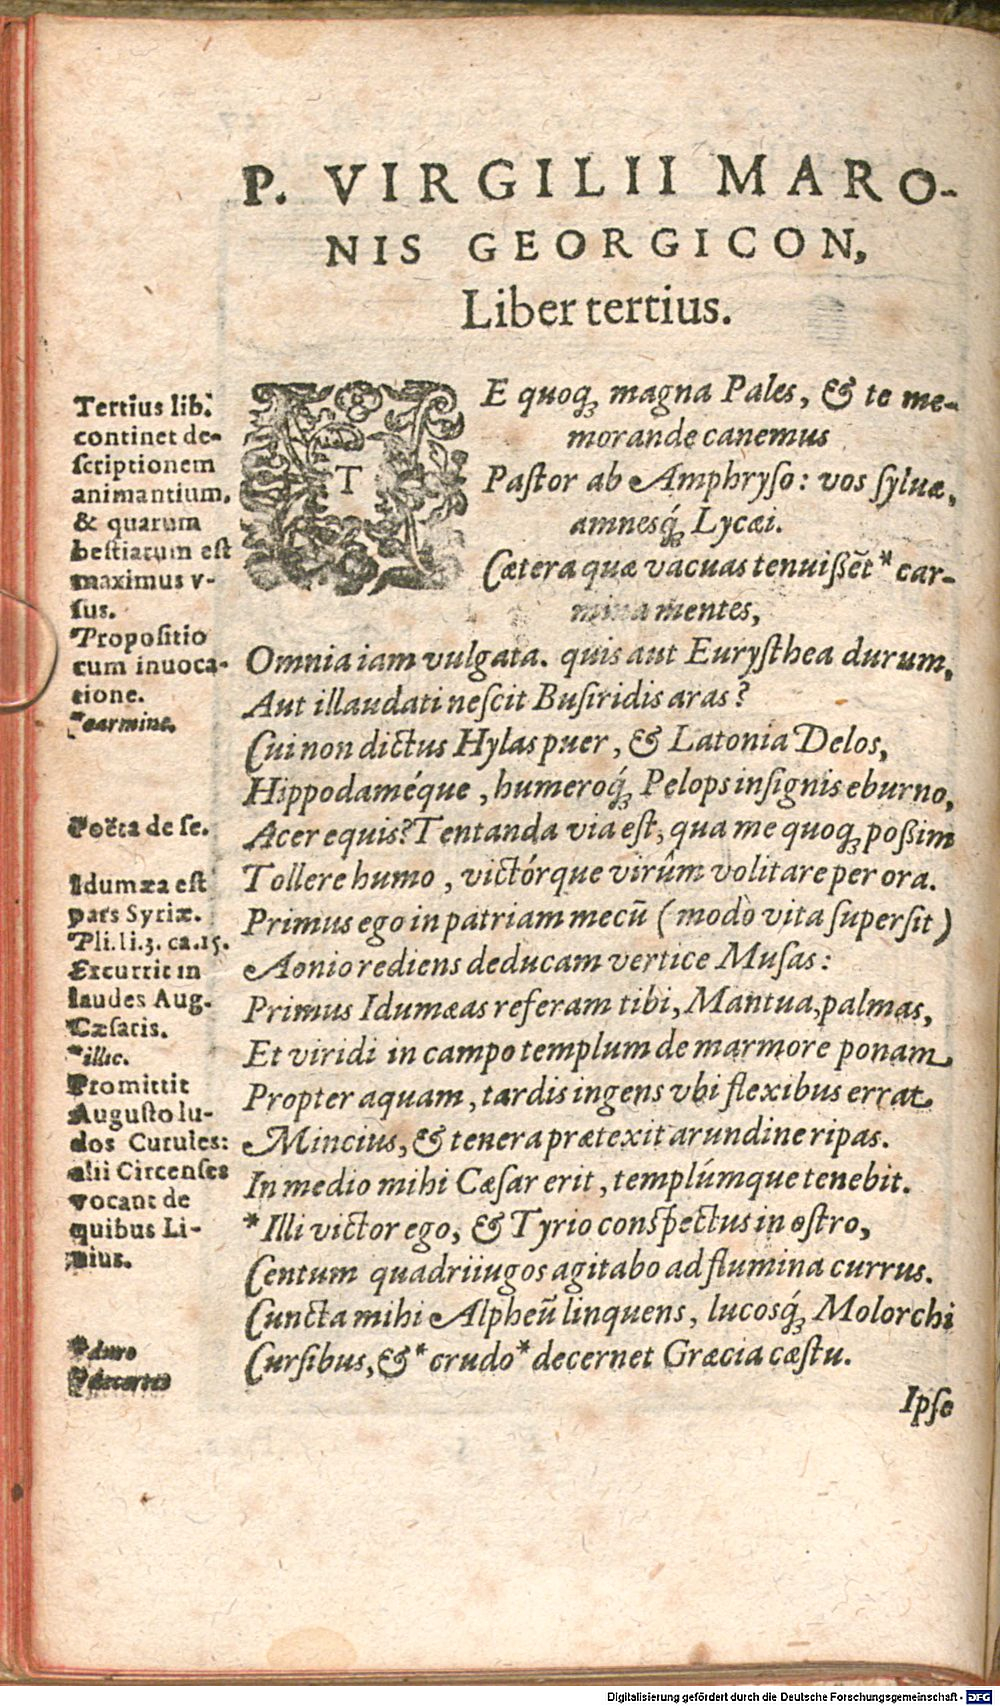 P. VIRGILII MARO-
NIS GEORGICON,
Liber tertius.
TE quoq; magna Pales, & te me-
morande canemus
Pastor ab Amphryso: vos syluæ,
amnesq́; Lycæi.
Cætera quæ vacuas tenuißẽt * car-
mina mentes,
Omnia iam vulgata. quis aut Eurysthea durum,
Aut illaudati nescit Busiridis aras?
Cui non dictus Hylas puer, & Latonia Delos,
Hippodaméque, humeroq́; Pelops insignis eburno,
Acer equis? Tentanda via est, qua me quoq; poßim
Tollere humo, victórque virûm volitare per ora.
Primus ego in patriam mecũ (modo vita supersit)
Aonio rediens deducam vertice Musas:
Primus Idumæas referam tibi, Mantua, palmas,
Et viridi in campo templum de marmore ponam
Propter aquam, tardis ingens vbi flexibus errat
Mincius, & tenera prætexit arundine ripas.
In medio mihi Cæsar erit, templúmque tenebit.
*Illi victor ego, & Tyrio conspectus in ostro,
Centum quadriiugos agitabo ad flumina currus.
Cuncta mihi Alpheũ linquens, lucosq́; Molorchi
Cursibus, & * crudo * decernet Græcia cæstu.
Ipse
Tertius lib.
continet de-
scriptionem
animantium,
& quarum
bestiarum est
maximus v-
sus.
Propositio
cum inuoca-
tione.
*carmine.
Poëta de se.
Idumæa est
pars Syriæ.
Pli. li. 3. ca. 15.
Excurrit in
laudes Aug.
Cæsaris.
*illic.
Promittit
Augusto lu-
dos Curules:
alii Circenses
vocant de
quibus Li-
uius.
*duro
Digitalisierung gefördert durch die Deutsche Forschungsgemeinschaft - DFG